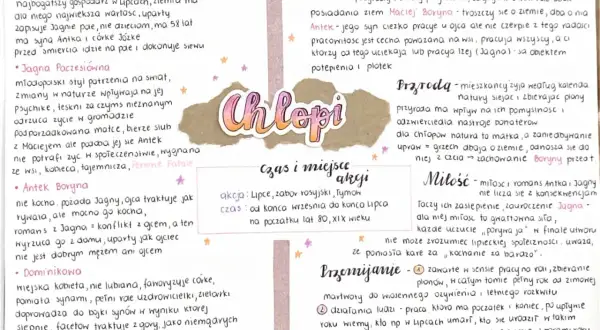 najbogatszy gospodarz w Lipcach, ziemia ma
dla niego największą wartość, uparty
zapisuje Jagnie pole, nie dzieciom, ma 58 lat
ma syna Antka i córkę Józkę
Przed śmiercią idzie na pole i dokonuje siewu
• Jagna Paczesiówna
młodopolski styl patrzenia na świat,
zmiany w naturze wpływają na jej
psychikę, tęskni za czymś nieznanym
odrzuca życie w gromadzie
podporządkowana matce, bierze ślub
z Maciejem ale podoba jej się Antek
nie potrafi żyć w społeczeństwie, wygnana
ze wsi, kobieca, tajemnicza, femme fatale
• Antek Boryna
nie kocha, pożąda Jagny, ojca traktuje jak
rywala, ale mocno go kocha,
romans z Jagną = konflikt z ojcem, a ten
wyrzuca go z domu, uparty jak ojciec
nie jest dobrym mężem ani ojcem
• Dominikowa
wiejska kobieta, nie lubiana, faworyzuje córkę,
pomiata synami, pełni rolę uzdrowicielki, zielarki
doprowadza do bójki synów w wyniku której
ślepnie, facetów traktuje z góry, jako niemądrych
Chłopi
czas i miejsce
akcji
akcja: Lipce, zabór rosyjski, Tymów
czas: od końca września do końca lipca
na początku lat 80, XIX wieku
posiadania ziem Maciej Boryna - troszczy się o ziemię, dba o nią
Antek - jego syn ciężko pracuje u ojca ale nie czerpie z tego radości
pracowitość jest cechą poważaną na wsi, pracują wszyscy, a ci
którzy od tego uciekają lub pracują lżej (Jagna) - są obiektem
potępienia i plotek
Przyroda - mieszkańcy żyją według kalendarza
natury siejąc i zbierając plony
przyroda ma wpływ na ich pomyślność i
odzwierciedla nastroje bohaterów
dla chłopów natura to matka, a zaniedbywanie
upraw = grzech dbają o ziemię, odnoszą się do
niej z czcią → zachowanie Boryny przed ś
Miłość - miłość i romans Antka i Jagny
nie liczą się z konsekwencjami
łączy ich zaślepienie, zauroczenie Jagna -
dla niej miłość to gwałtowna siła,
każde uczucie „porywa ją” w finale utworu
nie może zrozumieć lipeckiej społeczności, uważa,
że poniosła karę za „kochanie za bardzo”.
Przemijanie - ① zawarte w sensie pracy na roli, zbieranie
plonów, w całym tomie pełny rok od zimowej
martwoty do wiosennego ożywienia i letniego rozkwitu
② działania ludzi - praca którą ma początek i koniec, po upływie
roku wiemy, kto np w Lipcach umarł, kto się urodził w takim